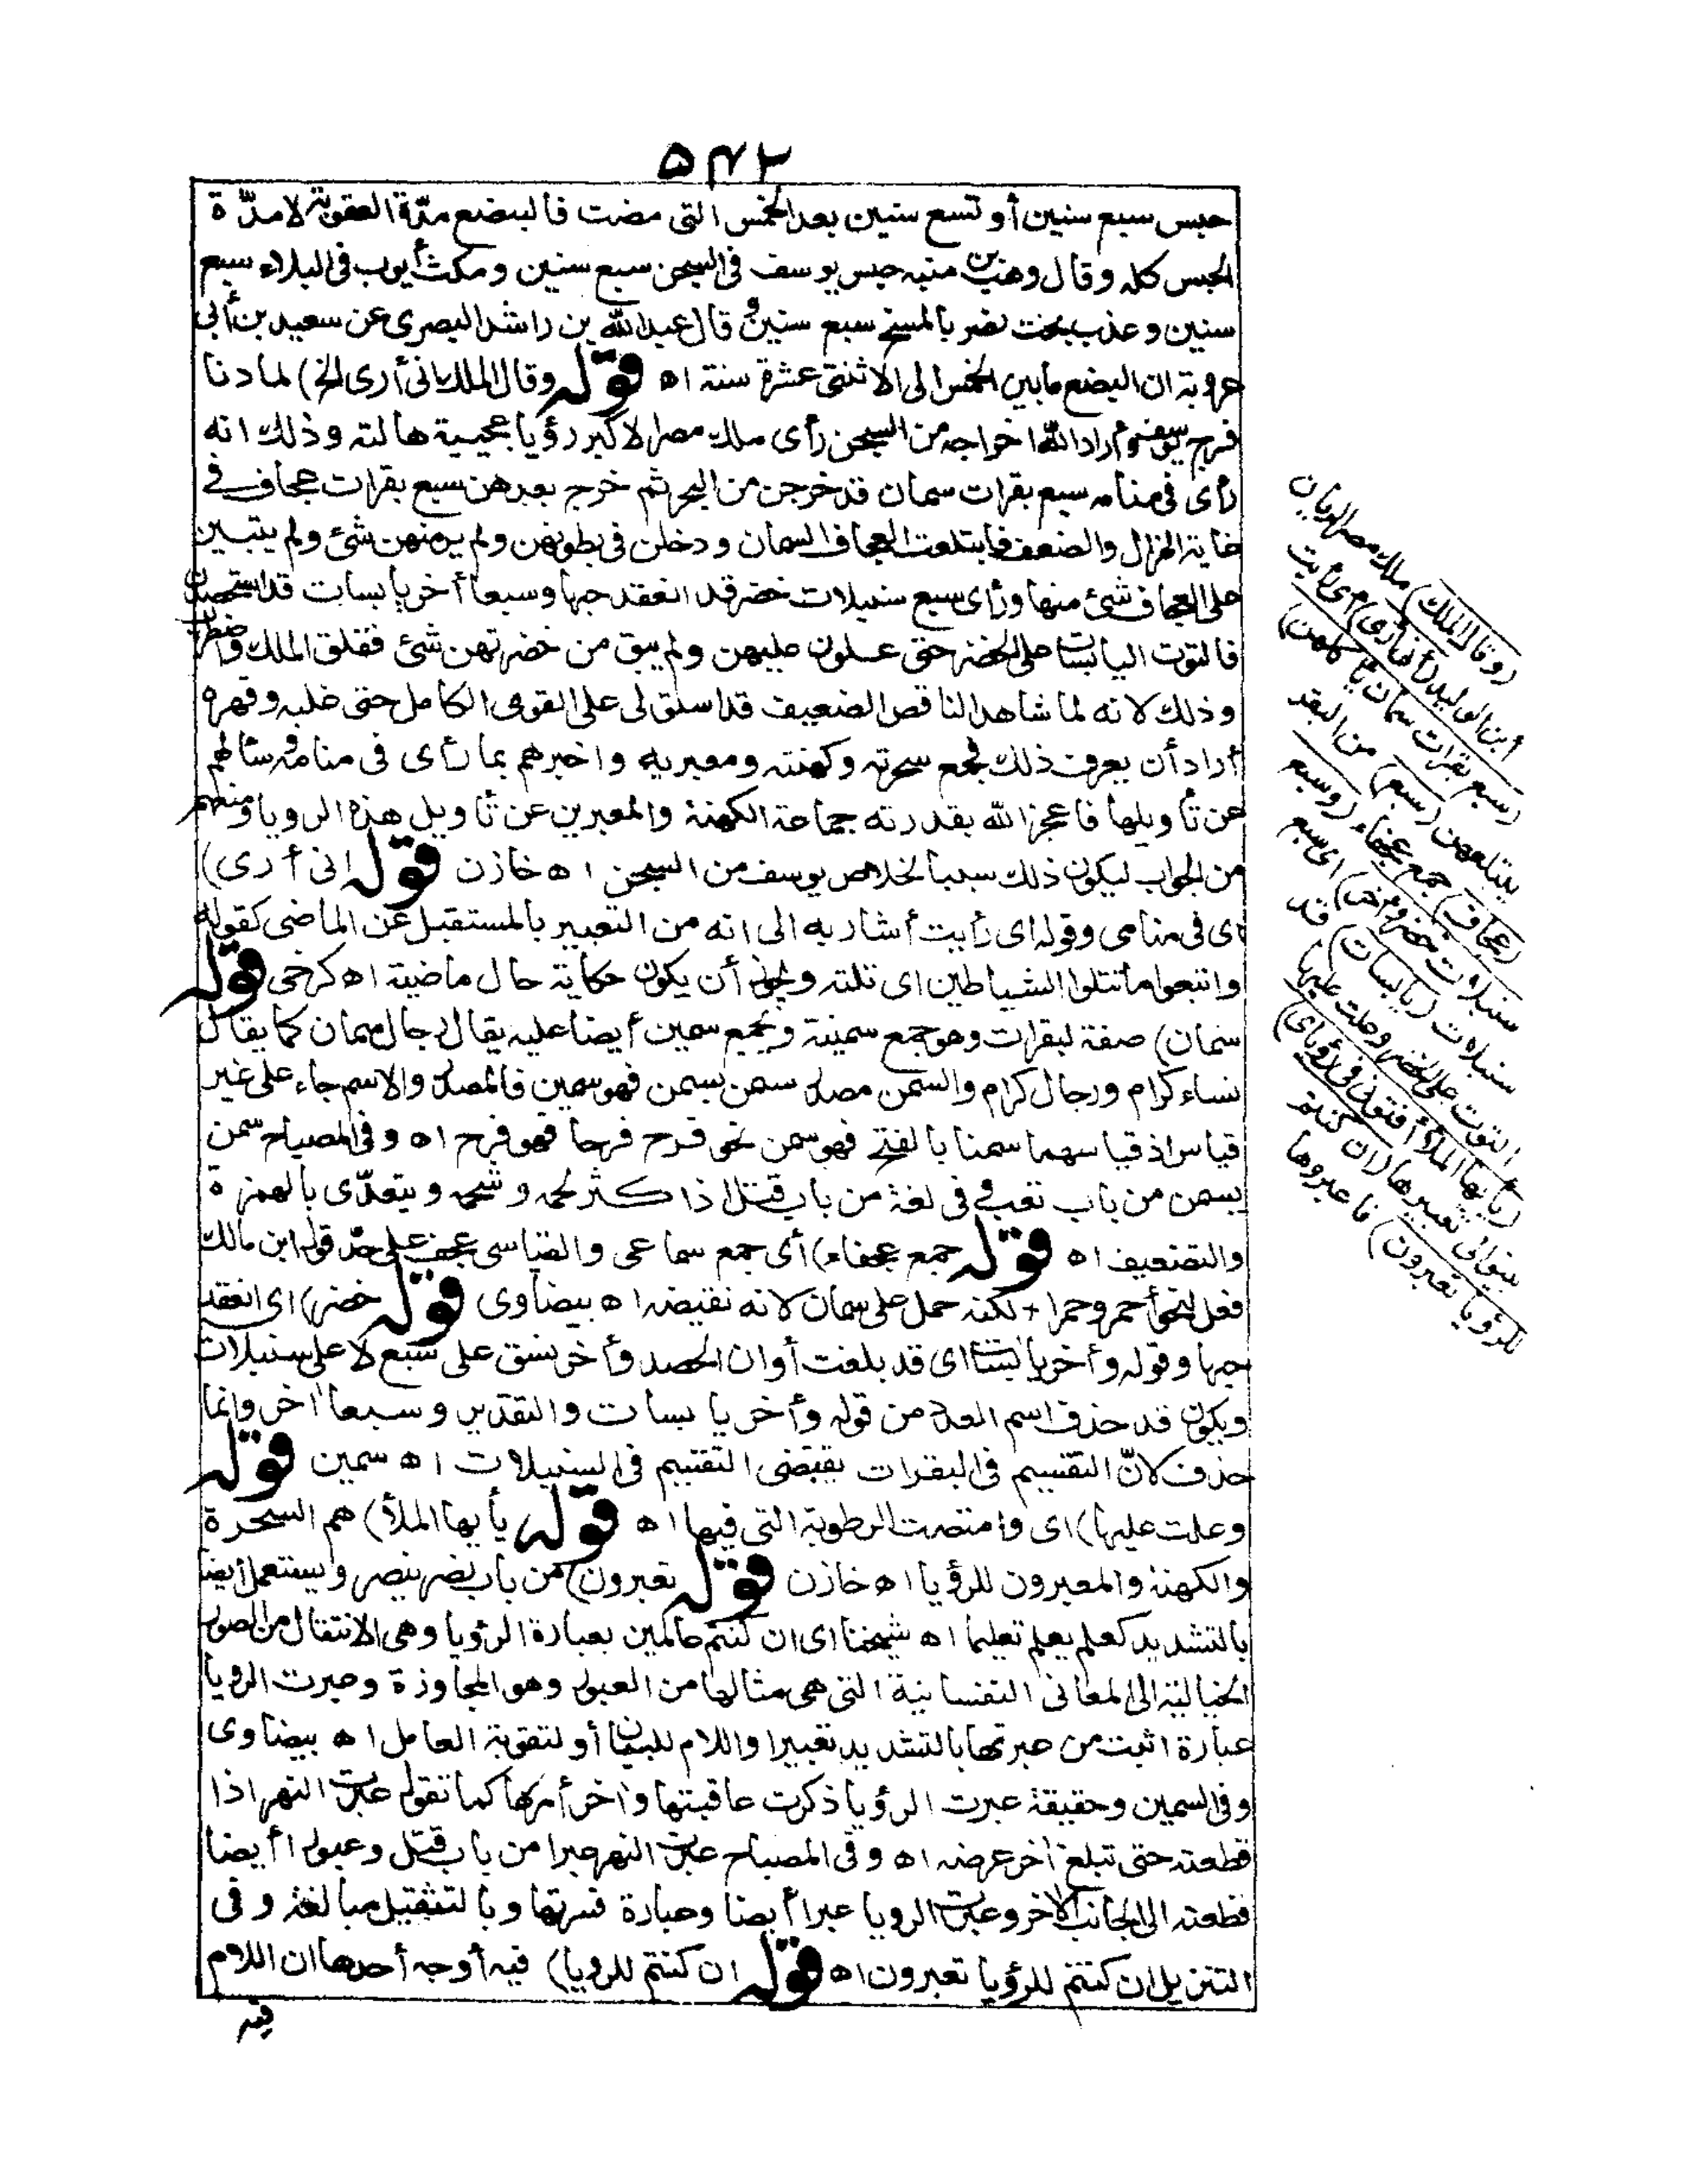 ٥٤٢
حبس سبع سنين أو تسع سنين بعد الخمس التى مضت فالبضع مدّة العقوبة لا مدّة
الحبس كله وقال وهب بن منبه حبس يوسف فى السجن سبع سنين ومكث أيوب فى البلاء سبع
سنين وعذب بخت نصر بالمسخ سبع سنين وقال عبدالله بن راشد البصرى عن سعيد بن أبى
عروبة ان البضع ما بين الخمس الى الاثنتى عشرة سنة اه قوله وقال الملك انى أرى الخ) لما دنا
فرج يوسف وأراد الله اخراجه من السجن رأى ملك مصر الاكبر رؤيا عجيبة هالته وذلك انه
رأى فى منامه سبع بقرات سمان قد خرجن من البحر ثم خرج بعدهن سبع بقرات عجاف فى
غاية الهزال والضعف فابتلعت العجاف السمان ودخلن فى بطونهن ولم ير منهن شئ ولم يتبين
على العجاف شئ منها ورأى سبع سنبلات خضر قد انعقد حبها وسبعا أخر يابسات قد استحصدن
فالتوت اليابسات على الخضر حتى علون عليهن ولم يبق من خضرتهن شئ فقلق الملك واضطرب
وذلك لانه لما شاهد الناقص الضعيف قد استولى على القوى الكامل حتى غلبه وقهره
أراد أن يعرف ذلك فجمع سحرته وكهنته ومعبريه واخبرهم بما رأى فى منامه وسألهم
عن تأويلها فاعجز الله بقدرته جماعة الكهنة والمعبرين عن تأويل هذه الرويا ومنعهم
من الجواب ليكون ذلك سببا لخلاص يوسف من السجن اه خازن قوله انى أرى)
اى فى منامى وقوله اى رأيت أشار به الى انه من التعبير بالمستقبل عن الماضى كقوله
واتبعوا ما تتلوا الشياطين اى تلته ويجوز أن يكون حكاية حال ماضية اه كرخى قوله
سمان) صفة لبقرات وهو جمع سمينة ويجمع سمين أيضا عليه يقال رجال سمان كما يقال
نساء كرام ورجال كرام والسمن مصدر سمن يسمن فهو سمين فالمصدر والاسم جاء على غير
قياس اذ قياسهما سمنا بالفتح فهو سمن نحو فرح فرحا فهو فرح اه وفى المصباح سمن
يسمن من باب تعب وفى لغة من باب قتل اذا كثر لحمه وشحمه ويتعدّى بالهمزة
والتضعيف اه قوله جمع عجفاء) أى جمع سماعى والقياسى عجف على حدّ قول ابن مالك
فعل لنحو أحمر وحمرا + لكنه حمل على سمان لانه نقيضه اه بيضاوى قوله خضر) اى انعقد
حبها وقوله وأخر يابسات اى قد بلغت أوان الحصد وأخر نسق على سبع لا على سنبلات
ويكون قد حذف اسم العدد من قوله وأخر يابسات والتقدير وسبعا أخر وانما
حذف لانّ التقسيم فى البقرات يقتضى التقسيم فى السنبلات اه سمين قوله
وعلت عليها) اى وامتصت الرطوبة التى فيها اه قوله يأيها الملأ) هم السحرة
والكهنة والمعبرون للرؤيا اه خازن قوله تعبرون) من باب نصر ينصر ويستعمل أيضا
بالتشديد كعلم يعلم تعليما اه شيخنا اى ان كنتم عالمين بعبارة الرؤيا وهى الانتقال من الصور
الخيالية الى المعانى النفسانية التى هى مثالها من العبور وهو المجاوزة وعبرت الرويا
عبارة اثبت من عبرتها بالتشديد تعبيرا واللام للبيان أو لتقوية العامل اه بيضاوى
وفى السمين وحقيقة عبرت الرؤيا ذكرت عاقبتها وآخر أمرها كما تقول عبرت النهر اذا
قطعته حتى تبلغ آخر عرضه اه وفى المصباح عبرت النهر عبرا من باب قتل وعبورا أيضا
قطعته الى الجانب الآخر وعبرت الرويا عبرا أيضا وعبارة فسرتها وبالتثقيل مبالغة وفى
التنزيل ان كنتم للرؤيا تعبرون اه قوله ان كنتم للرويا) فيه أوجه أحدها ان اللام
فيه
(وقال الملك) ملك مصر الريان
ابن الوليد (أنى أرى) اى رأيت
(سبع بقرات سمان يأكلهن)
يبتلعهن (سبع) من البقر
(عجاف) جمع عجفاء (وسبع
سنبلات خضر وأخر) اى سبع
سنبلات (يابسات) قد
التوت على الخضر وعلت عليها
(يأيها الملأ أفتونى فى رؤياى)
بينوا لى تعبيرها (ان كنتم
للرؤيا تعبرون) فاعبروها